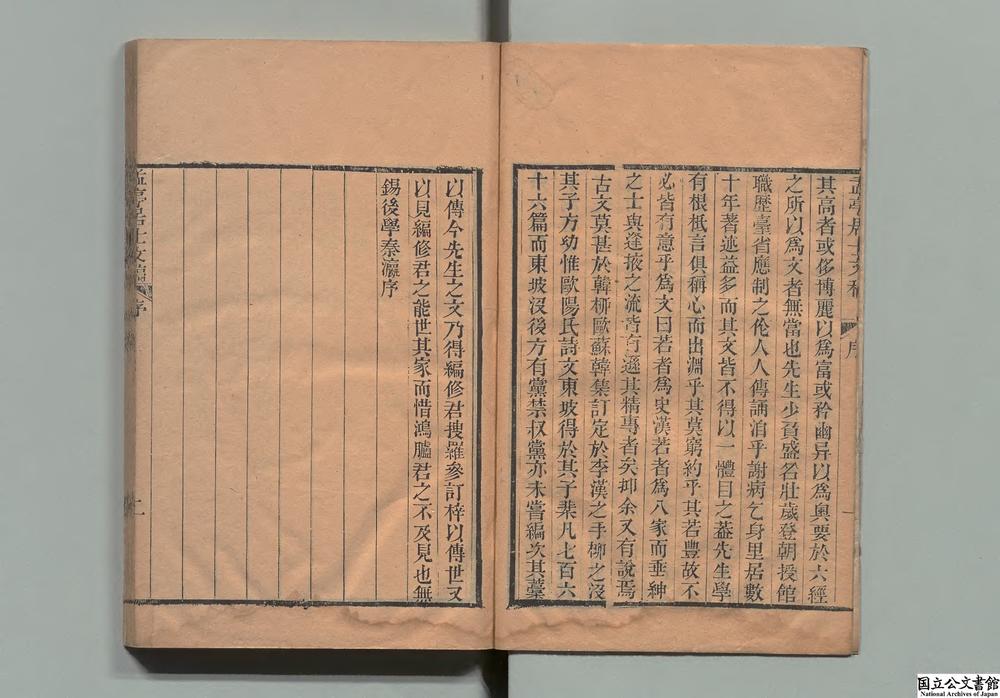 其高者或侈博麗以爲富或矜幽异以爲奧要於六經
之所以爲文者無當也先生少負盛名壯歲登朝授館
職歷臺省應制之作人人傳誦洎乎謝病乞身里居數
十年著述益多而其文皆不得以一體目之葢先生學
有根柢言俱稱心而出淵乎其莫窮約乎其若豐故不
必皆有意乎爲文曰若者爲史漢若者爲八家而垂紳
之士與逢掖之流皆有遜其精專者矣抑余又有說焉
古文莫甚於韓柳歐蘇韓集訂定於李漢之手柳之沒
其子方幼惟歐陽氏詩文東坡得於其子棐凡七百六
十六篇而東坡沒後方有黨禁叔黨亦未嘗編次其藁
序
以傳今先生之文乃得編修君搜羅參訂梓以傳世又
以見編修君之能世其家而惜鴻臚君之不及見也無
錫後學秦瀛序
孟亭居士文稿
序
二
国立公文書館
National Archives of Japan